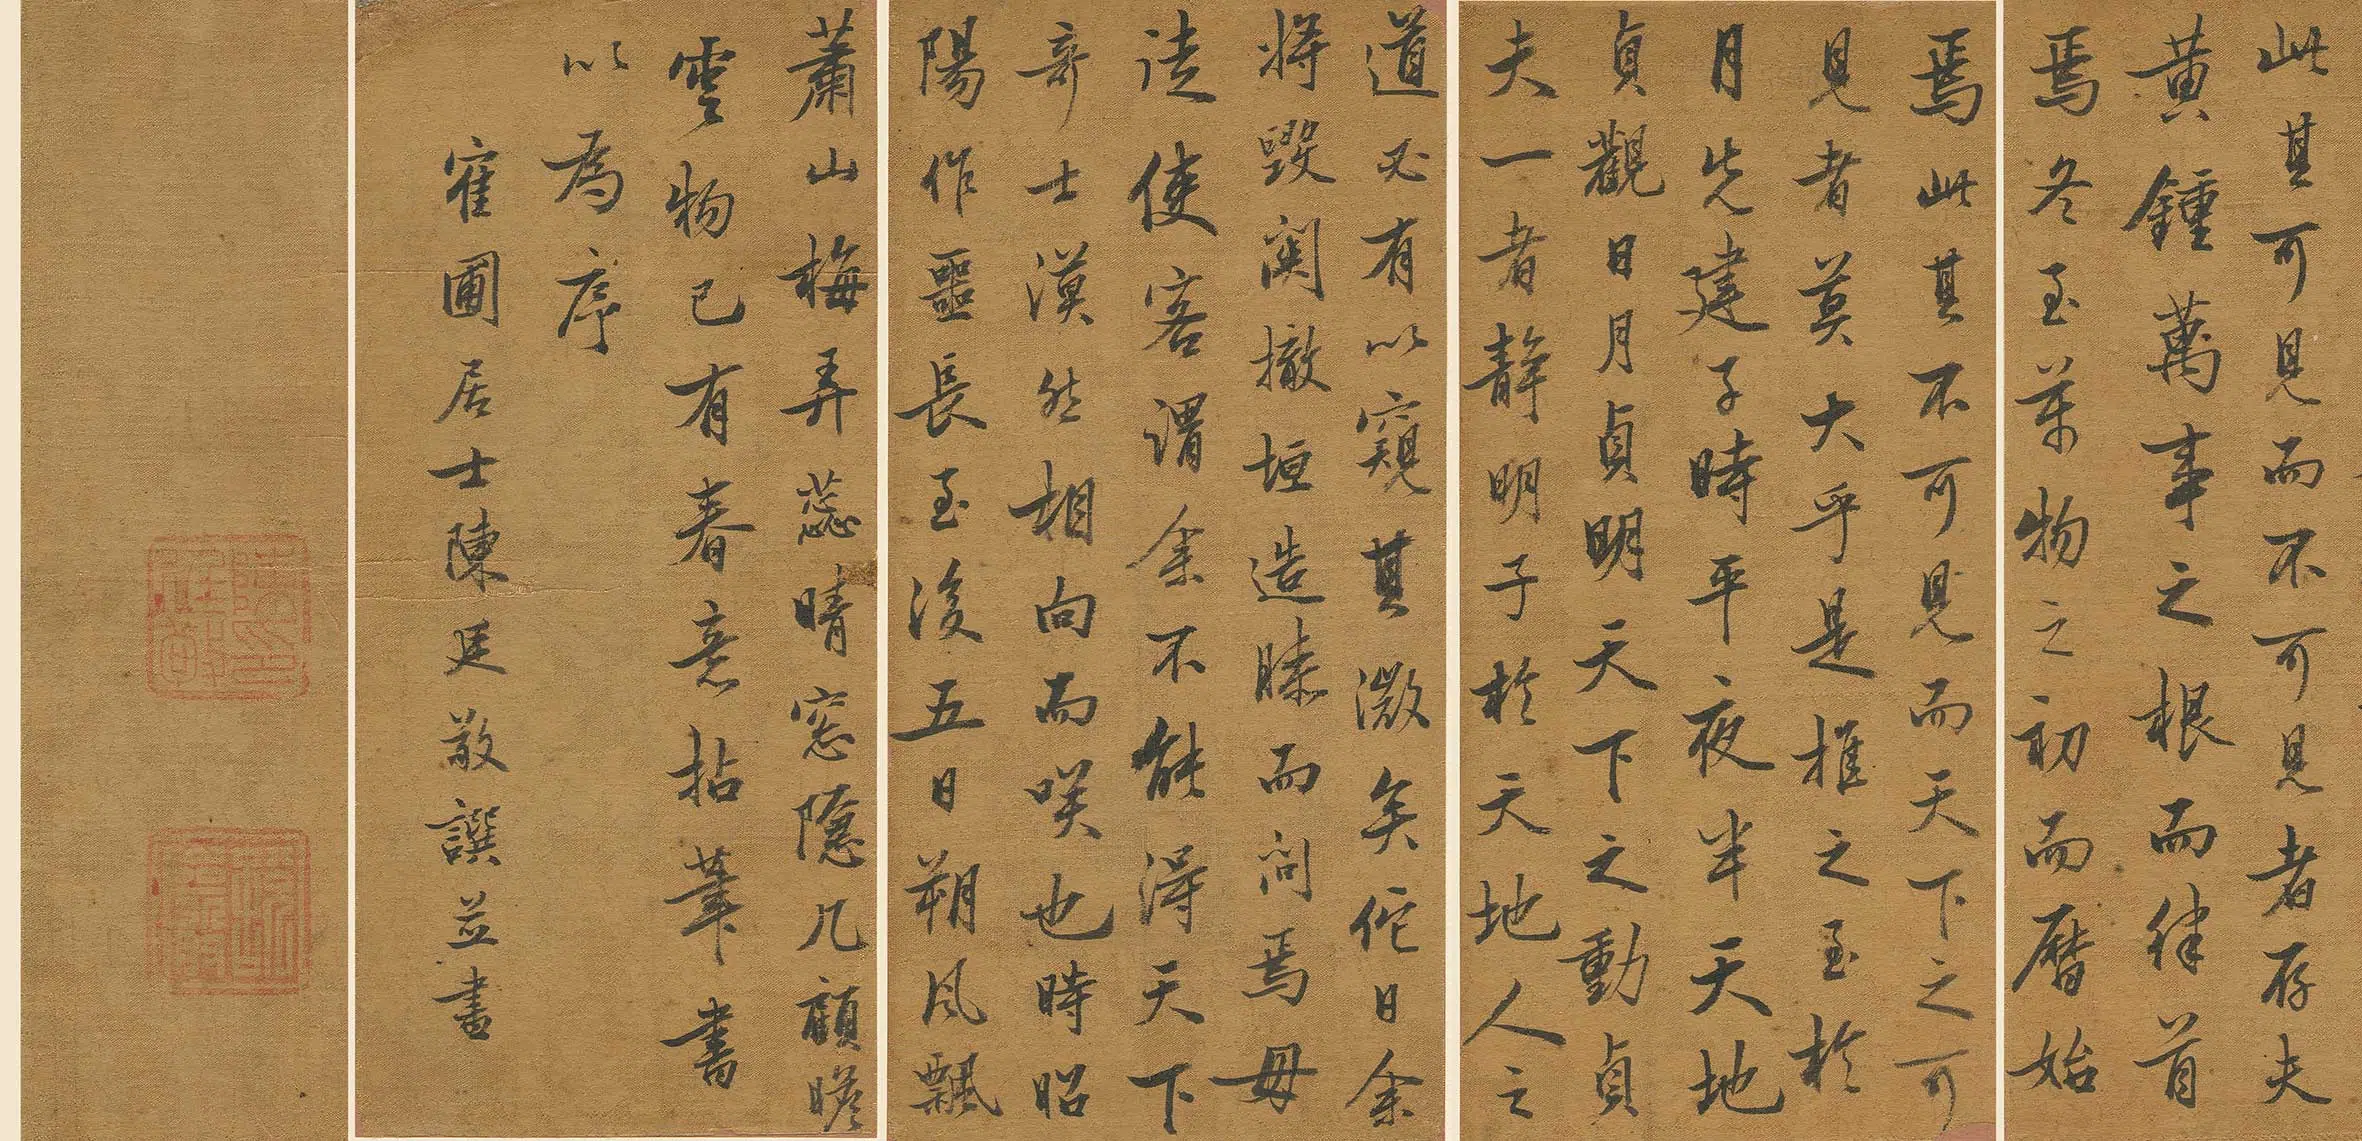 此其可見而不可見者存夫
黄鍾萬事之根而律首
焉冬至萬物之初而曆始
焉此其不可見而天下之可
見者莫大乎是推之至於
月先建子時平夜半天地
貞觀日月貞明天下之動貞
夫一者静明子於天地人之
道必有以窺其微矣佗日余
将毀関撤垣造膝而問焉毋
徒使客謂余不能得天下
奇士漠然相向而咲也時昭
陽作噩長至後五日朔風飄
蕭山梅弄蕊晴窓隱几顧瞻
雲物已有春意拈筆書
以為序
寉圃居士陳廷敬譔並書